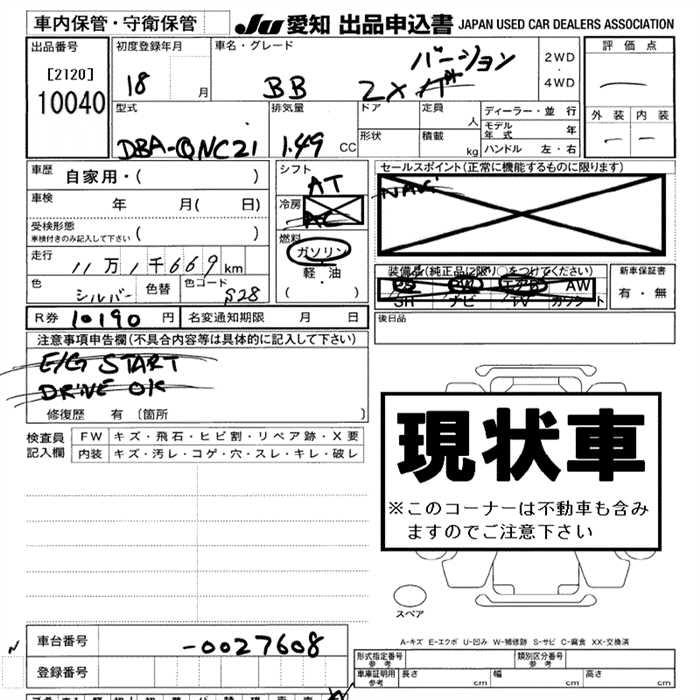 車内保管・守衛保管
JU 愛知 出品申込書 JAPAN USED CAR DEALERS ASSOCIATION
出品番号 初度登録年月 車名・グレード 評価点
[2120] 18 月 BB ZX バージョン 2WD ・ 4WD
10040
型式 排気量 ドア 定員 人 ディーラー・並 行 外装 内装
DBA-QNC21 1.49 CC 形状 積載 kg モデル年式 年
ハンドル 左・右
車歴 自家用・( ) シフト AT セールスポイント(正常に機能するものに限ります)
車検 年 月( 日) 冷房 AC NAVI
受検形態 車検付きのみ記入して下さい ( ) 燃料 ガソリン
走行 11万1千669km 軽・油 装備品(純正品に限り○をつけてください) 新車保証書
色 シルバー 色替 色コード S28 ( ) PS PW エアB AW 有・無
SH ナビ TV カワシート
R券 10190 円 名変通知期限 月 日 後日品
注意事項申告欄(不具合内容等は具体的に記入して下さい)
E/G START
DRIVE OK
修復歴 有 〔箇所 〕
検査員記入欄 FW キズ・飛石・ヒビ割・リペア跡・X要
内装 キズ・汚レ・コゲ・穴・スレ・キレ・破レ
現状車
※このコーナーは不動車も含み
ますのでご注意下さい
スペア
A-キズ E-エクボ U-凹み W-補修跡 S-サビ C-腐食 XX-交換済
車台番号 -0027608
形式指定番号 参考 類別区分番号 参考
登録番号 車庫証明用 参考 長さ cm 幅 cm 高さ cm